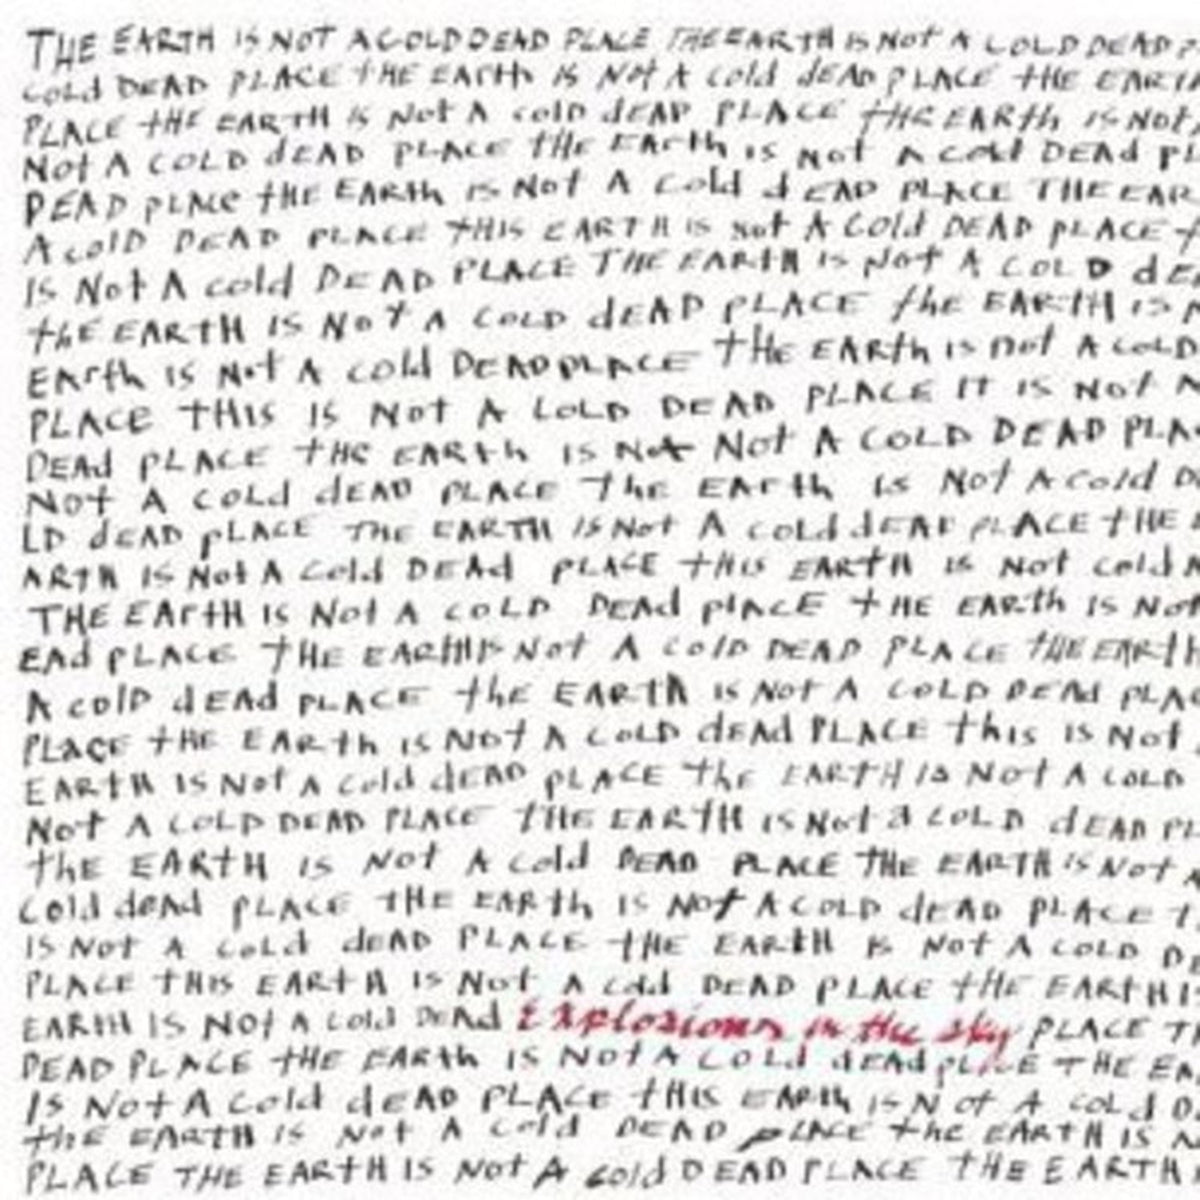 THE EARTH IS NOT A COLD DEAD PLACE THE EARTH IS NOT A COLD DEAD P
COLd DEAD PLACE tHE EARth IS Not A Cold dEAD PLACE tHE EARTH
PLACE tHE EARTH IS Not A cold dEAD PLACE tHE EARth IS NOt
Not A COLD dEAD PLACE tHE EARth is Not A Cold DEAd PL
DEAD PLACe tHE EARth IS Not A Cold dEAD PLACE THE EAR
A colD DEAD PLACE tHIS EARTH IS Not A COld DEAD PLACE t
IS Not A cold DEAD PLACE THE EARTH IS Not A COLD dE
thE EARtH IS NoT A COLD dEAD PLACE the EARTH IS N
EArth IS Not A cold DEAD PLACE tHE EARth is not A COLD
PLACE THIS IS NOT A COLD DEAD PLACE IT IS NOt A
DEAd PLACE tHE EARth IS Not Not A COLD DEAD PLA
NOT A COLd dEAD PLACE The EArth is Not A Cold D
LD dEAD pLACE THE EARTH IS Not A cold dEAD PLACE tHE
ARTH IS Not A Cold DEAd PLACE tHIS EARtH IS Not cold A
THE EArtH IS Not A COLD DEAd plACE tHE EARth IS Not
EAd PLACE THE EARTH IS Not A COlD DEAD PLACE tHE EARtH
A colD dEAd PLACE the EARTH IS Not A COLD DEAd PLA
PLACE tHE EARth IS Not A COLD dEAd PLACE this IS Not
EARTH IS Not A Cold dEAD PLACE the EARTH IS Not A COLD
Not A COLD DEAD PLACE tHE EARTH IS Not a COLD dEAD PL
thE EARtH IS Not A Cold DEAD PLACE THE EARTH IS Not A
Cold dead PLACE tHE EARth IS Not A COLD dEAD PLACE t
IS Not A Cold dEAD PLACE tHE EARtH IS Not A COLD DE
PLACE tHIS EARtH IS Not A Cold DEAD PLACE tHE EARTH I
EARTH IS NOt A Cold DEAd Explosions in the sky PLACE T
DEAD PLACE tHE EARth IS NOt A COLd dEAd PLACE tHE EA
IS Not A Cold dEAD PLACE tHIS EARth is Not A COLd D
thE EARTH IS Not A Cold DEAD PLACE the EARtH IS N
PLACE THE EARtH IS Not A cold DEAD PLACE tHE EARTH